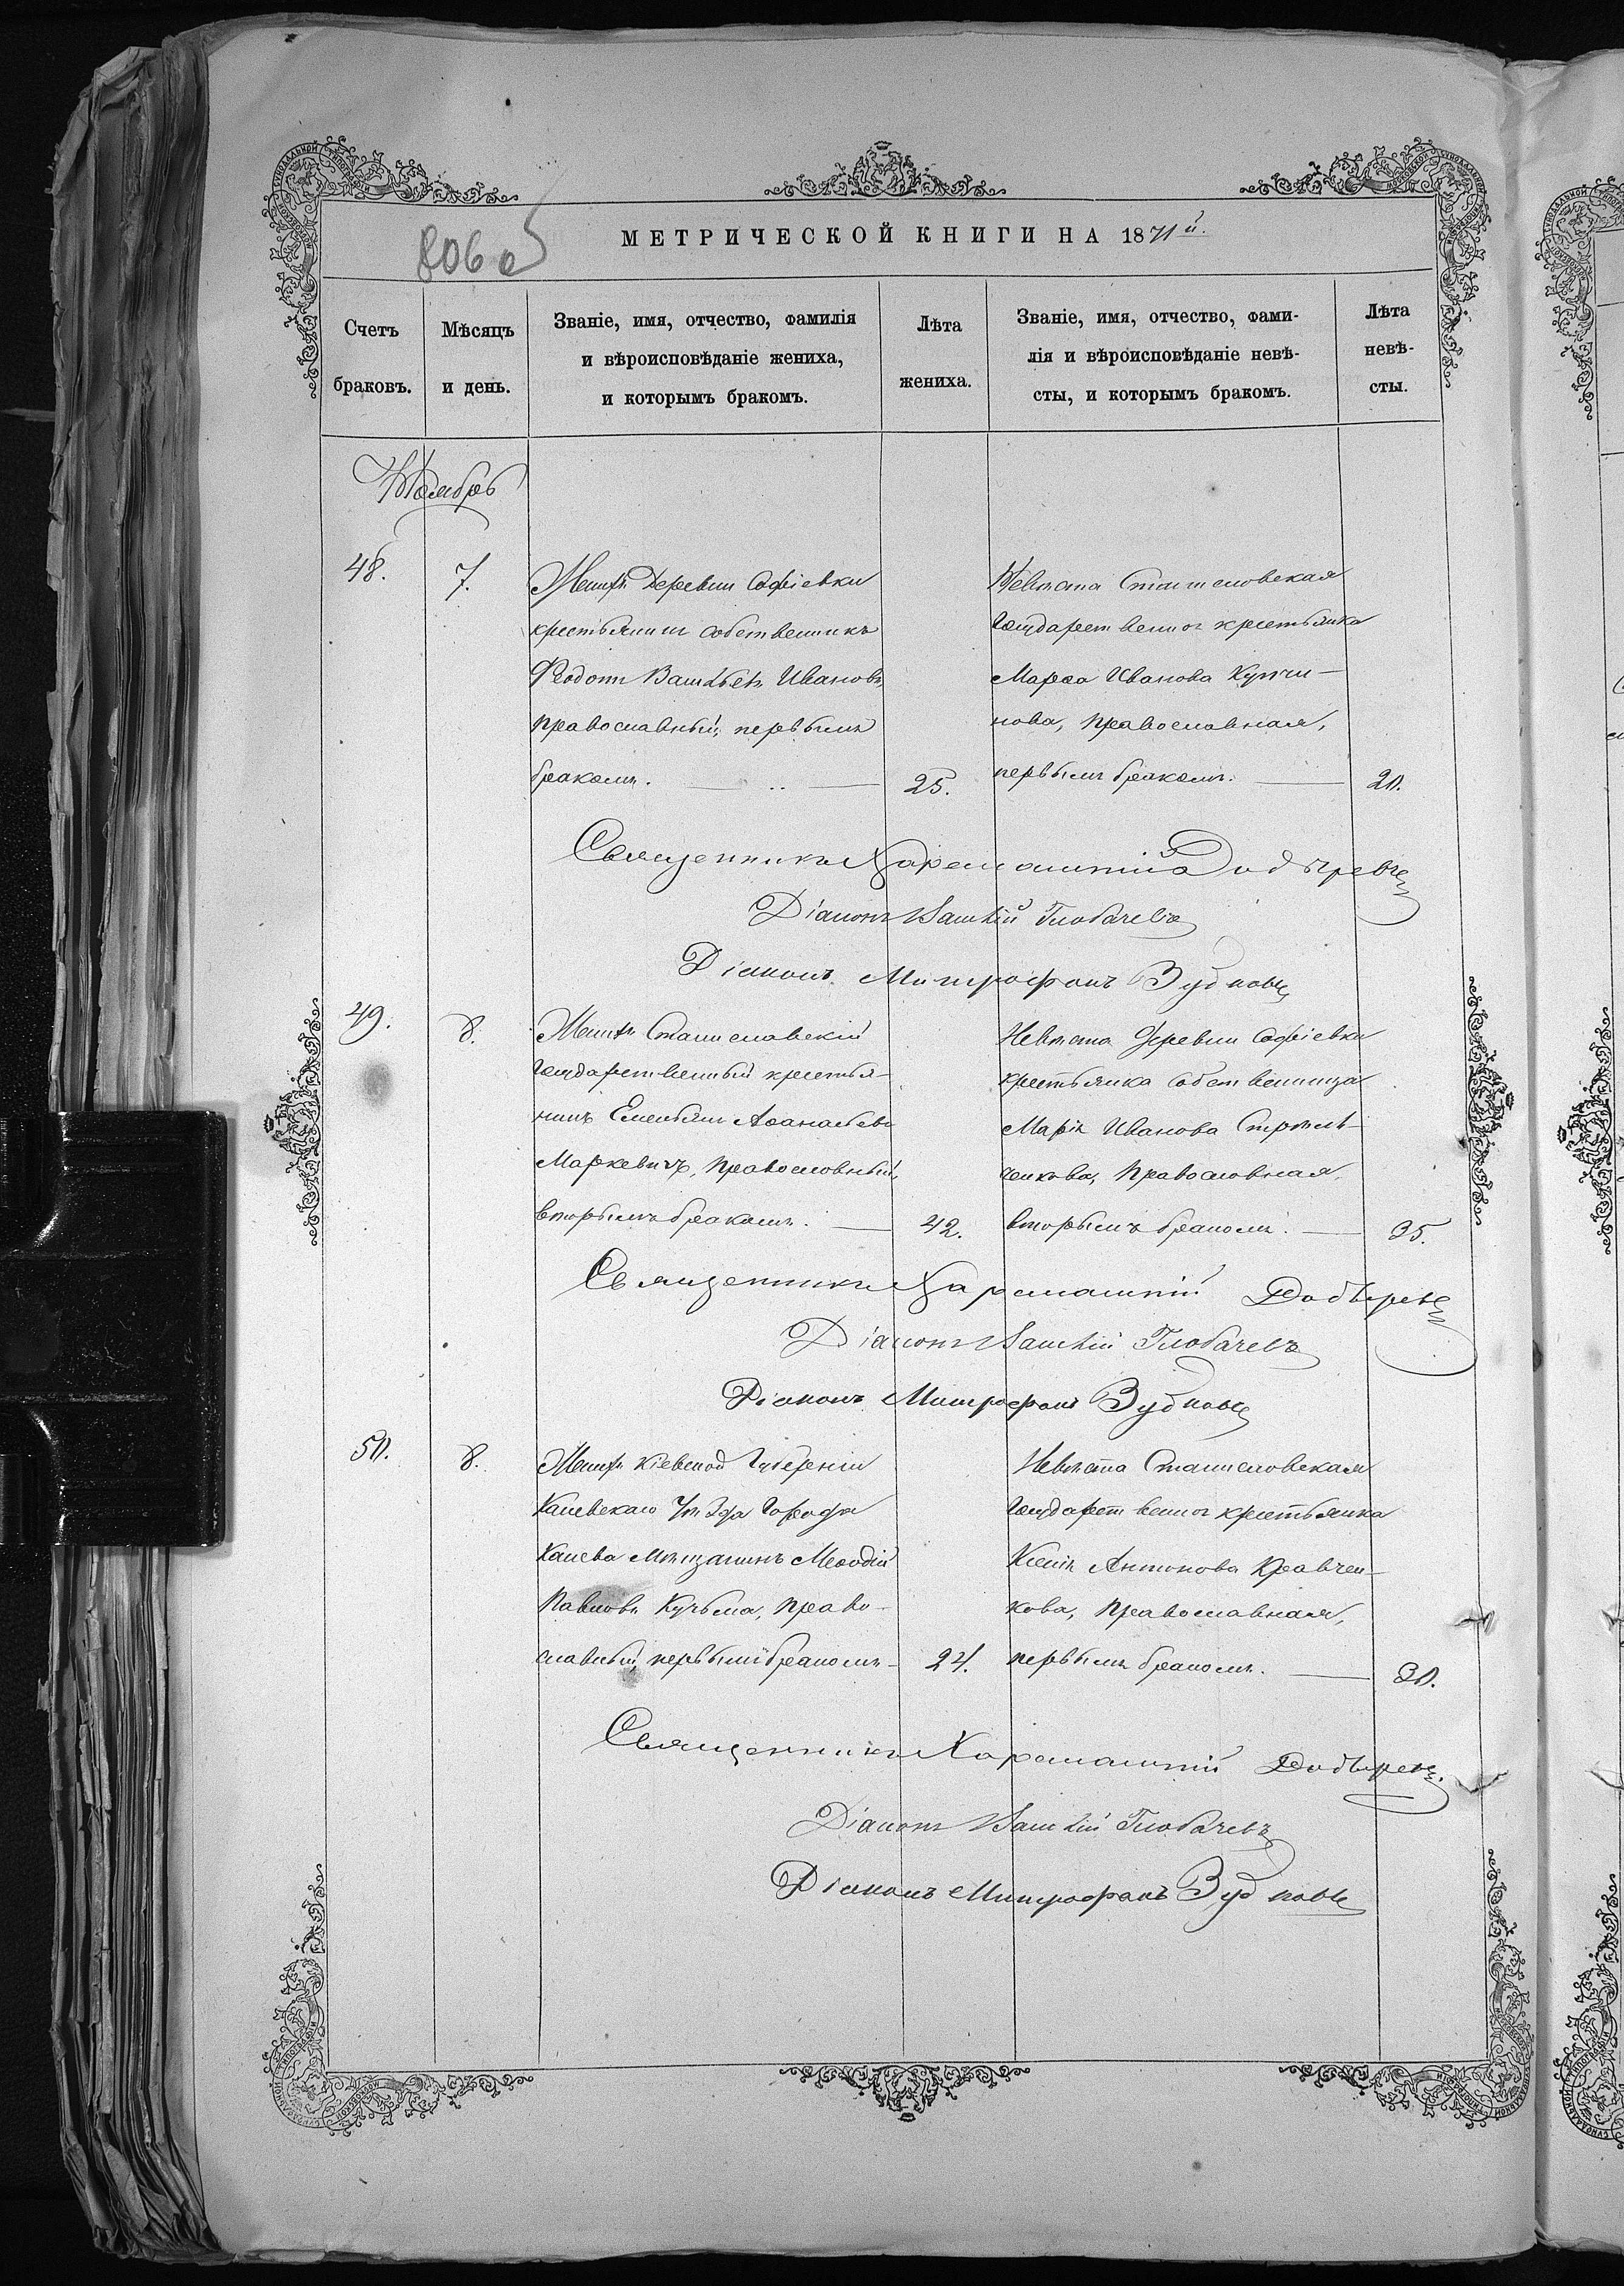 806 об
МЕТРИЧЕСКОЙ КНИГИ НА 1871й.
Счетъ браковъ.
Мѣсяцъ и день.
Званіе, имя, отчество, фамилія
и вѣроисповѣданіе жениха,
и которымъ бракомъ.
Лѣта жениха.
Званіе, имя, отчество, фами-
лія и вѣроисповѣданіе невѣ-
сты, и которымъ бракомъ.
Лѣта невѣ-
сты.
Ноябрь
48.
7.
Женихъ Деревни Софіевки
крестьянинъ собственникъ
Ѳеодотъ Васильевъ Ивановъ,
православный, первымъ
бракомъ.
25.
Невѣста Станиславская
Государственная крестьянка
Марѳа Иванова Купчи-
нова, православная,
первымъ бракомъ.
20.
Священникъ Харлампій
Діаконъ Василій Глобачевъ
Діаконъ Митрофанъ Зубковъ
49.
8.
Женихъ Станиславскій
Государственный крестья-
нинъ Емельянъ Аѳанасьевъ
Маркевичъ, православный,
вторымъ бракомъ.
42.
Невѣста Деревни Софіевки
крестьянка собственница
Марія Иванова Стрѣль-
ченкова, Православная,
вторымъ бракомъ.
35.
Священникъ Харлампій
Діаконъ Василій Глобачевъ
Діаконъ Митрофанъ Зубковъ
50.
8.
Женихъ Кіевской Губерніи
Каневскаго Уѣзда Города
Канева Мѣщанинъ Меѳодій
Павловъ Кузьма, Право-
славный, первымъ бракомъ
24.
Невѣста Станиславская
Государственная крестьянка
Ксенія Антонова Кравчен-
кова, Православная,
первымъ бракомъ.
30.
Священникъ Харлампій
Діаконъ Василій Глобачевъ
Діаконъ Митрофанъ Зубковъ